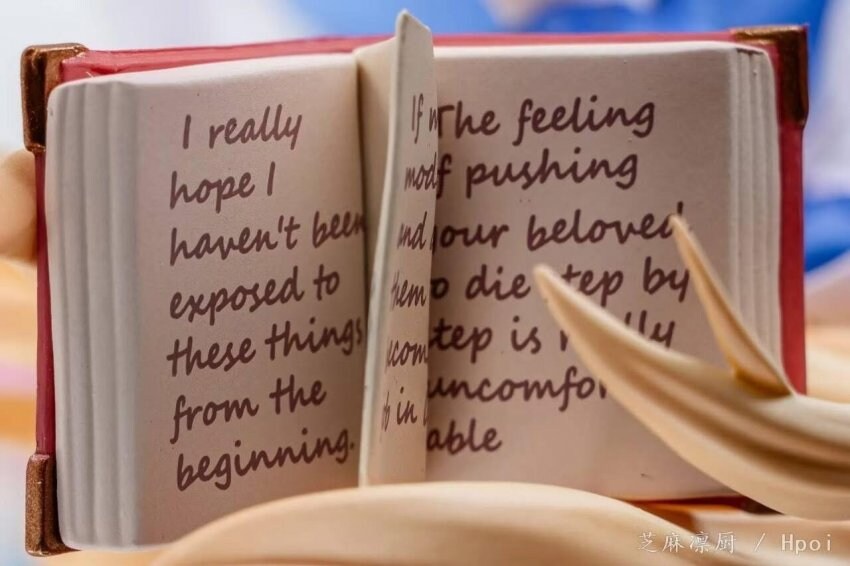 I really
hope I
haven't been
exposed to
these things
from the
beginning.
If
and
The feeling
pushing
your beloved
to die step by
step is really
uncomfor
able
芝麻凛厨 / Hpoi